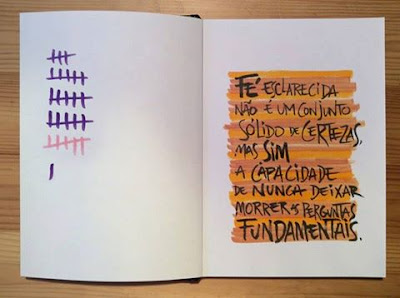 FÉ ESCLARECIDA
NÃO É UM CONJUNTO
SÓLIDO DE CERTEZAS,
MAS SIM
A CAPACIDADE
DE NUNCA DEIXAR
MORRER AS PERGUNTAS
FUNDAMENTAIS.